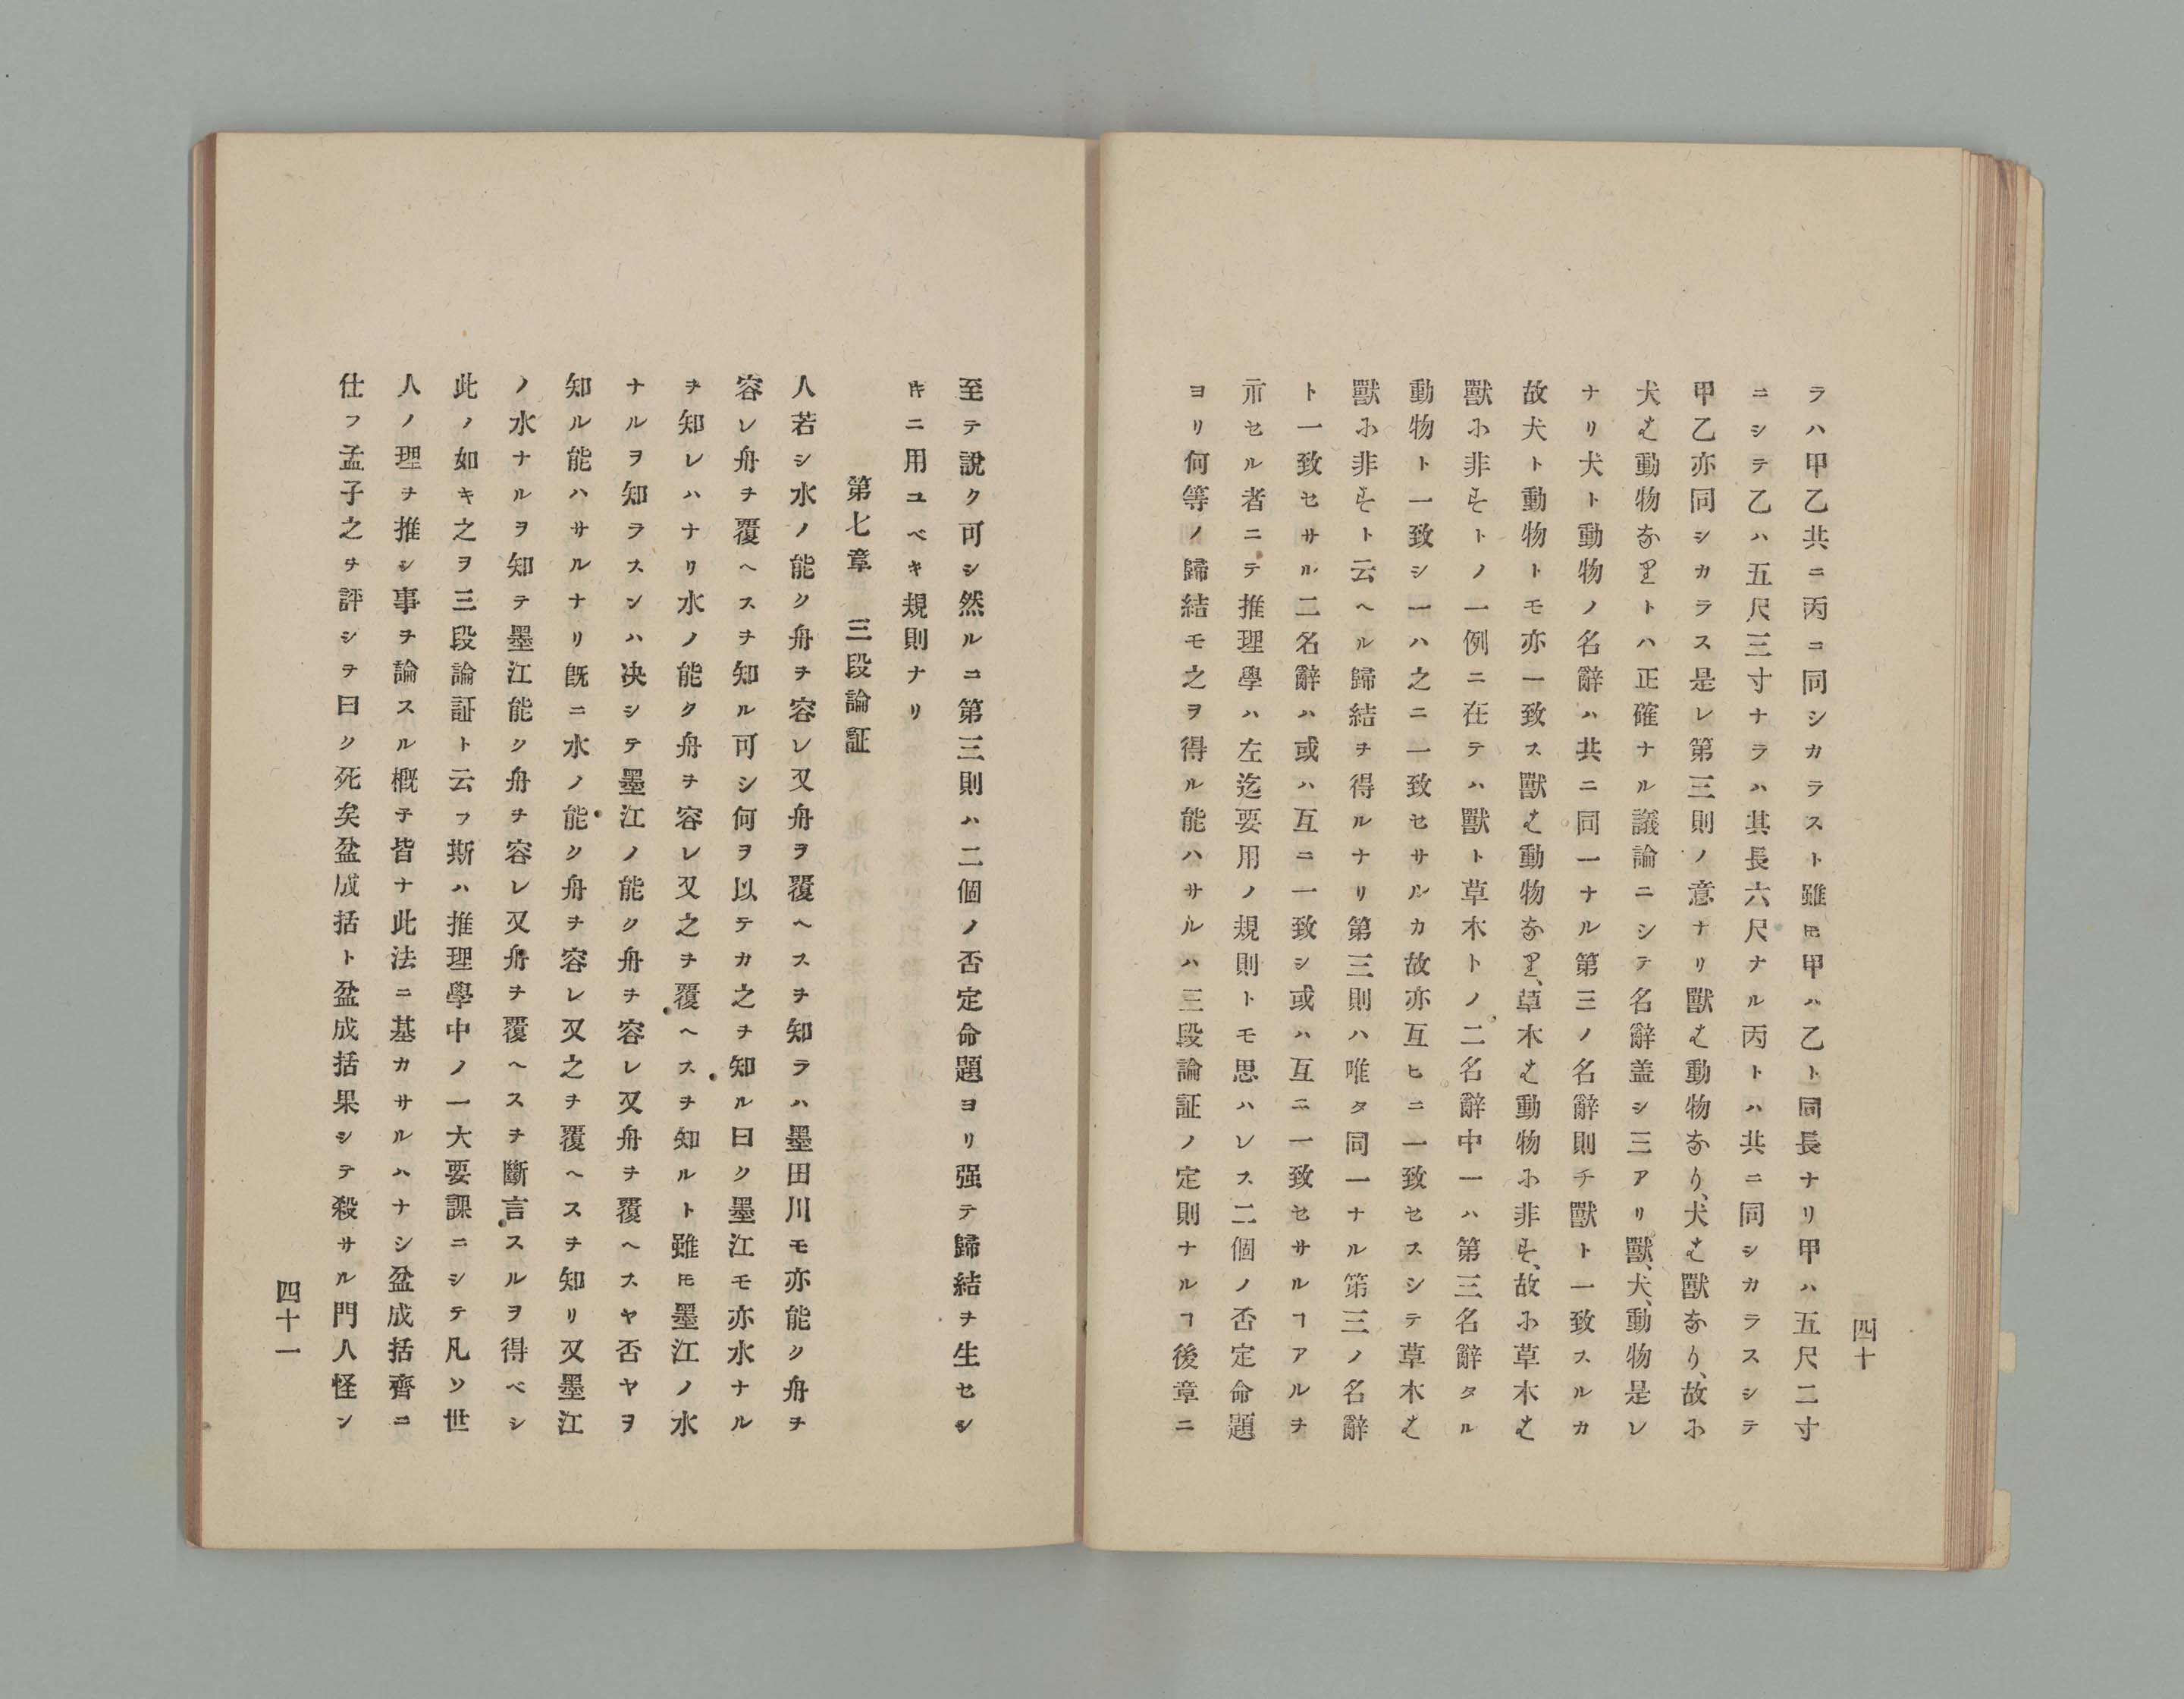 四十
ラハ甲乙共ニ丙ニ同シカラスト雖𪜈甲ハ乙ト同長ナリ甲ハ五尺二寸
ニシテ乙ハ五尺三寸ナラハ其長六尺ナル丙トハ共ニ同シカラスシテ
甲乙亦同シカラス是レ第三則ノ意ナリ獸は動物なり、犬は獸なり、故に
犬は動物なりトハ正確ナル議論ニシテ名辭盖シ三アリ獸、犬、動物是レ
ナリ犬ト動物ノ名辭ハ共ニ同一ナル第三ノ名辭則チ獸ト一致スルカ
故犬ト動物トモ亦一致ス獸は動物なり、草木は動物に非ず、故に草木は
獸に非ずトノ一例ニ在テハ獸ト草木トノ二名辭中一ハ第三名辭タル
動物ト一致シ一ハ之ニ一致セサルカ故亦互ヒニ一致セスシテ草木は
獸に非ずト云ヘル歸結ヲ得ルナリ第三則ハ唯タ同一ナル第三ノ名辭
ト一致セサル二名辭ハ或ハ互ニ一致シ或ハ互ニ一致セサルヿアルヲ
示セル者ニテ推理學ハ左迄要用ノ規則トモ思ハレス二個ノ否定命題
ヨリ何等ノ歸結モ之ヲ得ル能ハサルハ三段論証ノ定則ナルヿ後章ニ
至テ說ク可シ然ルニ第三則ハ二個ノ否定命題ヨリ强テ歸結ヲ生セシ
キニ用ユベキ規則ナリ
第七章　三段論証
人若シ水ノ能ク舟ヲ容レ又舟ヲ覆ヘスヲ知ラハ墨田川モ亦能ク舟ヲ
容レ舟ヲ覆ヘスヲ知ル可シ何ヲ以テカ之ヲ知ル曰ク墨江モ亦水ナル
ヲ知レハナリ水ノ能ク舟ヲ容レ又之ヲ覆ヘスヲ知ルト雖𪜈墨江ノ水
ナルヲ知ラスンハ决シテ墨江ノ能ク舟ヲ容レ又舟ヲ覆ヘスヤ否ヤヲ
知ル能ハサルナリ既ニ水ノ能ク舟ヲ容レ又之ヲ覆ヘスヲ知リ又墨江
ノ水ナルヲ知テ墨江能ク舟ヲ容レ又舟ヲ覆ヘスヲ斷言スルヲ得ベシ
此ノ如キ之ヲ三段論証ト云フ斯ハ推理學中ノ一大要課ニシテ凡ソ世
人ノ理ヲ推シ事ヲ論スル槪子皆ナ此法ニ基カサルハナシ盆成括齊ニ
仕フ孟子之ヲ評シテ曰ク死矣盆成括ト盆成括果シテ殺サル門人怪ン
四十一